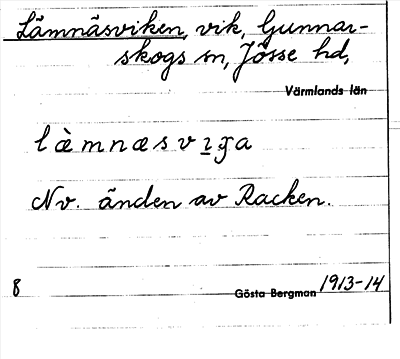 Lämnäsviken, vik, Gunnar-
skogs sn, Jösse hd,
Värmlands län
læ̀mnæsvıɣa
Nv. änden av Racken.
8 Gösta Bergman 1913-14